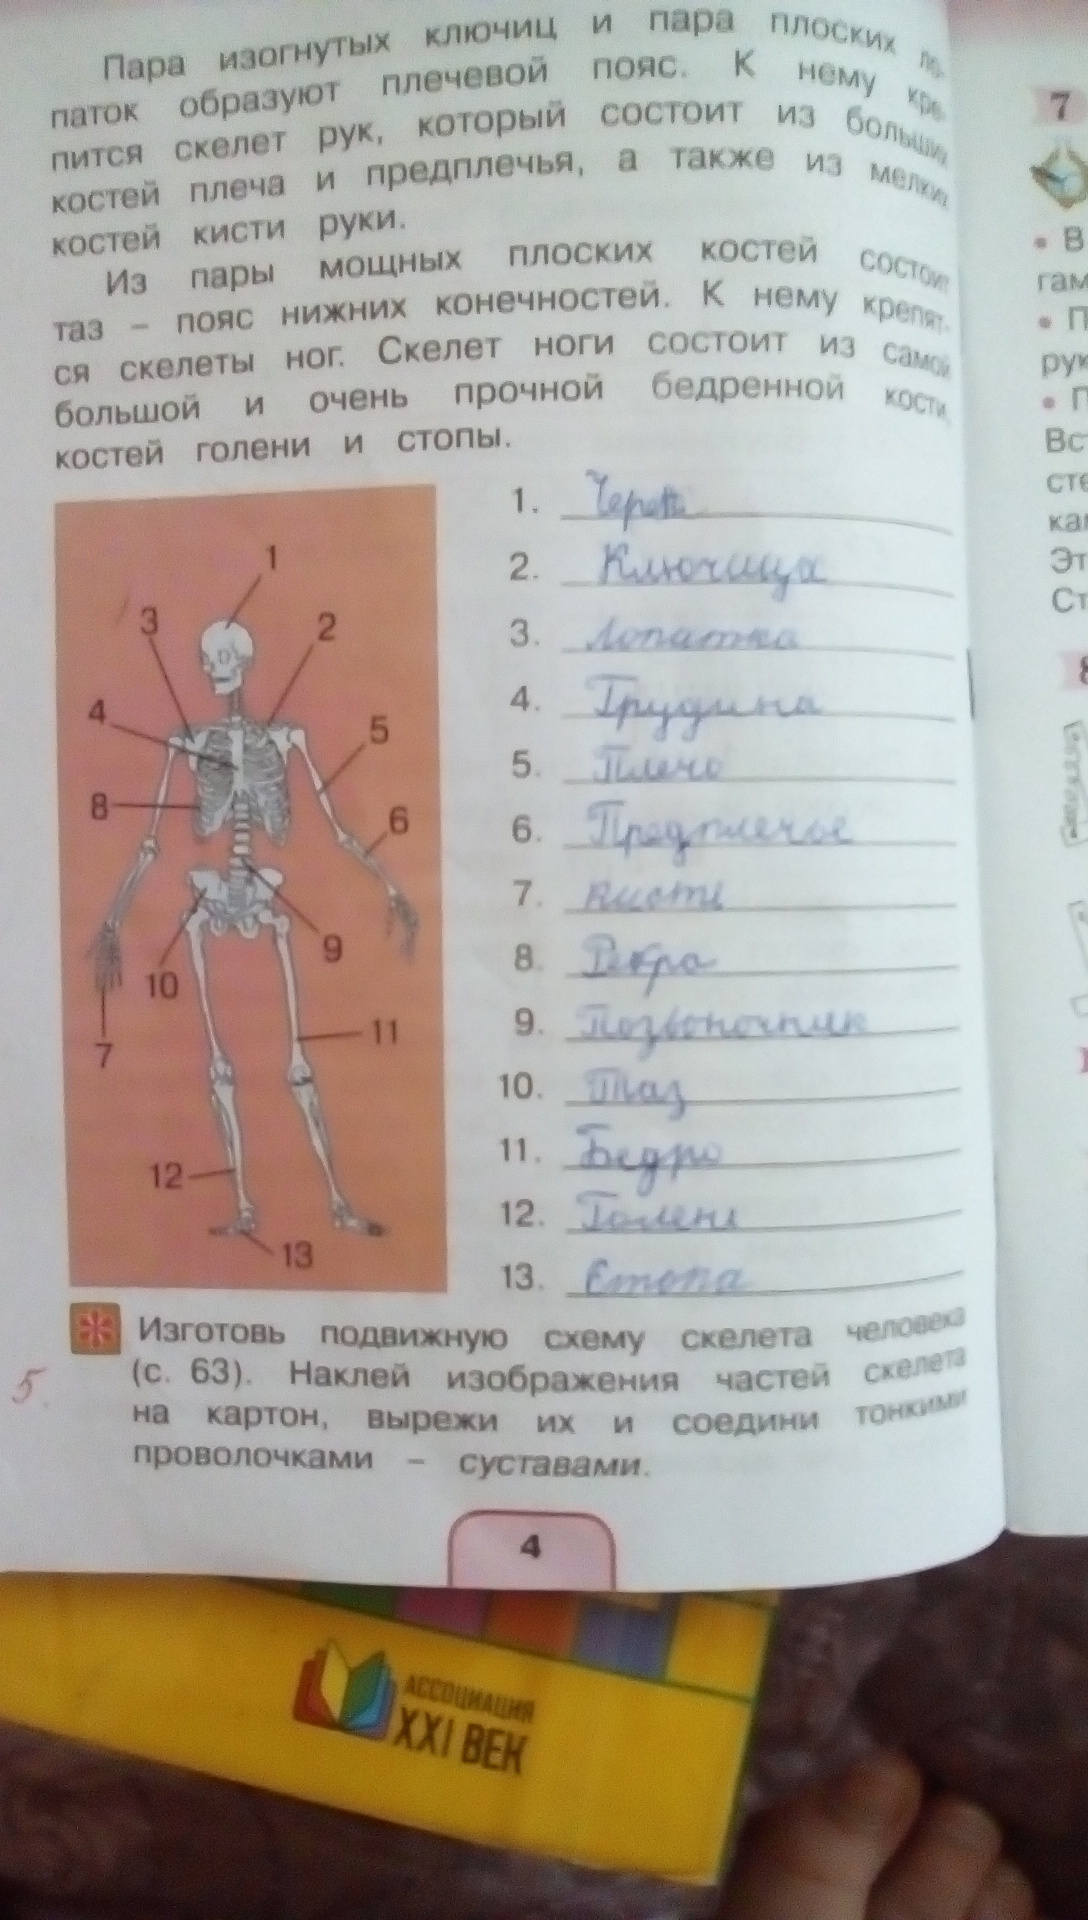 Пара изогнутых ключиц и пара плоских ло-
паток образуют плечевой пояс. К нему кре-
пится скелет рук, который состоит из больших
костей плеча и предплечья, а также из мелких
костей кисти руки.
Из пары мощных плоских костей состоит
таз – пояс нижних конечностей. К нему крепят-
ся скелеты ног. Скелет ноги состоит из самой
большой и очень прочной бедренной кости,
костей голени и стопы.
1. Череп
2. Ключица
3. Лопатка
4. Грудина
5. Плечо
6. Предплечье
7. Кисть
8. Ребра
9. Позвоночник
10. Таз
11. Бедро
12. Голень
13. Стопа
1
3
2
4
5
8
6
9
10
11
7
12
13
Изготовь подвижную схему скелета человека
(с. 63). Наклей изображения частей скелета
5.
на картон, вырежи их и соедини тонкими
проволочками – суставами.
4
7
В
гам
П
рук
П
Вс
сте
кам
Эт
Ст
8
АССОЦИАЦИЯ
XXI ВЕК